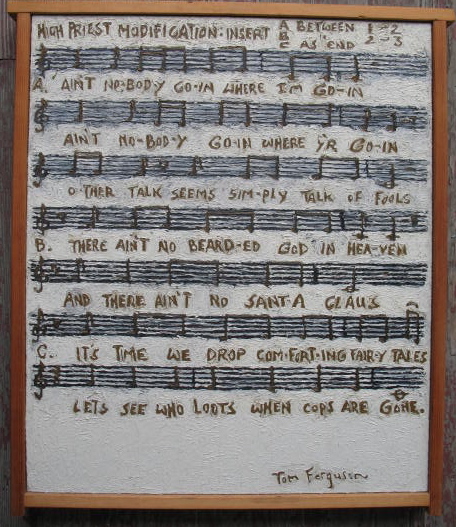 HIGH PRIEST MODIFICATION: INSERT A BETWEEN 1 - 2
B " 2 - 3
C AS END
A. AIN'T NO-BOD-Y GO-IN WHERE I'M GO-IN
AIN'T NO-BOD-Y GO-IN WHERE Y'R GO-IN
O-THER TALK SEEMS SIM-PLY TALK OF FOOLS
B. THERE AIN'T NO BEARD-ED GOD IN HEA-VEN
AND THERE AIN'T NO SANT-A CLAUS
C. IT'S TIME WE DROP COM-FORT-ING FAIR-Y TALES
LETS SEE WHO LOOTS WHEN COPS ARE GONE.
Tom Ferguson